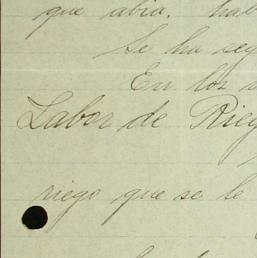 que abia. hab
Se ha seg
En los
Labor de Rieg
riego que se le